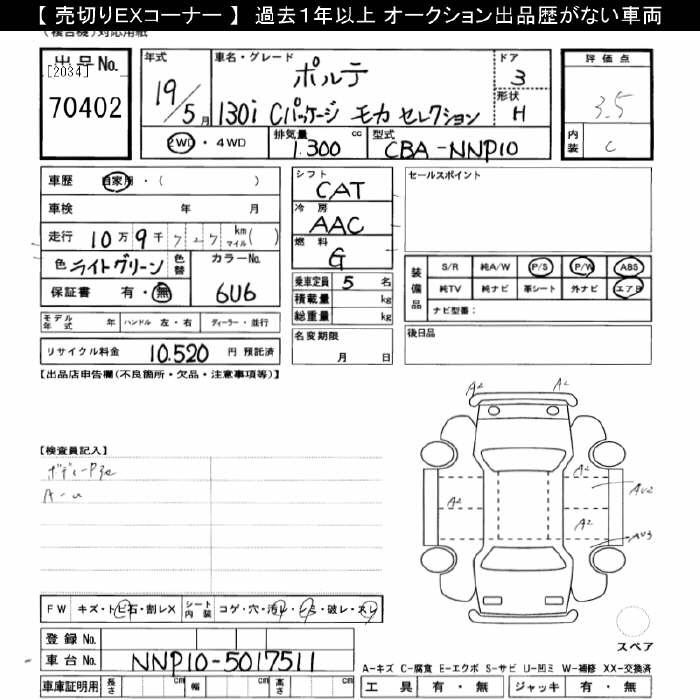 【 売切りEXコーナー 】 過去１年以上 オークション出品歴がない車両
(複合機)対応用紙
出 品 No.
[2034]
70402
年式
19/5月
車名・グレード
ポルテ
130i Cパッケージ モカ セレクション
ドア
3
形状
H
評 価 点
3.5
内装
C
2WD ・ 4WD
排気量
1.300 cc
型式
CBA-NNP10
車歴 自家用・( )
車検 年 月
走行 10万 9千 7 2 7 km マイル( )
色 ライトグリーン 色替 カラーNo.
6U6
保証書 有・無
シフト
CAT
冷 房
AAC
燃 料
G
乗車定員 5 名
積載量 kg
総重量 kg
セールスポイント
装備品
S/R 純A/W P/S P/W ABS
純TV 純ナビ 革シート 外ナビ エアB
ナビ型番:
モデル年式 年 ハンドル 左・右 ディーラー・並行
リサイクル料金 10.520 円 預託済
名変期限
月 日
後日品
【出品店申告欄(不良箇所・欠品・注意事項等)】
【検査員記入】
A2 A2
A2
A2
AU2
AU3
FW キズ・トビ石・割レX シート内装 コゲ・穴・汚レ・シミ・破レ・スレ
登 録 No.
車 台 No. NNP10-5017511
車庫証明用 長さ cm 幅 cm 高さ cm
スペア
A-キズ C-腐食 E-エクボ S-サビ U-凹ミ W-補修 XX-交換済
工 具 有・無 ジャッキ 有・無